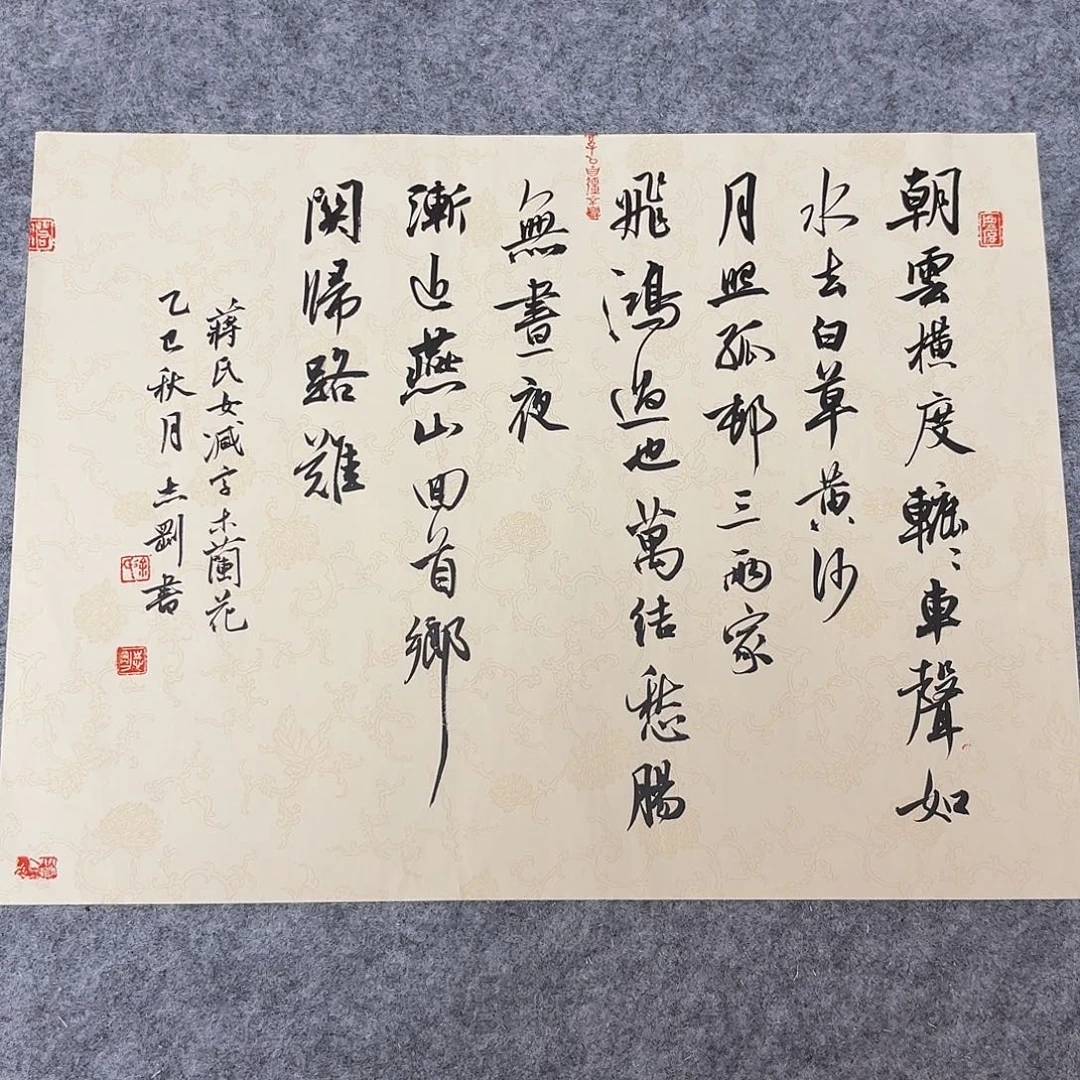 朝雲橫度轆〻車聲如
水去白草黃沙
月照孤邨三兩家
飛鴻過也萬結愁腸
無晝夜
漸近燕山回首鄉
関歸路難
蔣氏女減字木蘭花
乙巳秋月志剛書
徐氏